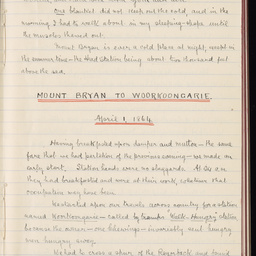 One blanket did not keep out the cold, and in the
morning I had to walk about in my sleeping-shop until
the muscles thawed out.
Mount Bryan is ever a cold place at night, even in
the summer time – the Head Station being about two thousand feet
above the sea.
MOUNT BRYAN TO WORKOONGARIE.
April 1, 1864
Having breakfasted upon damper and mutton – the same
fare that we had partaken of the previous evening – we made an
early start. Station hands were no sluggards. At
they had breakfasted and were at their work, whatever that
occupation may have been.
upon our travels across country for a station
named – called by "Hungry" station
because the owner – one – invariably sent hungry
men hungry away.
We had to cross a spur of the Razorback and found